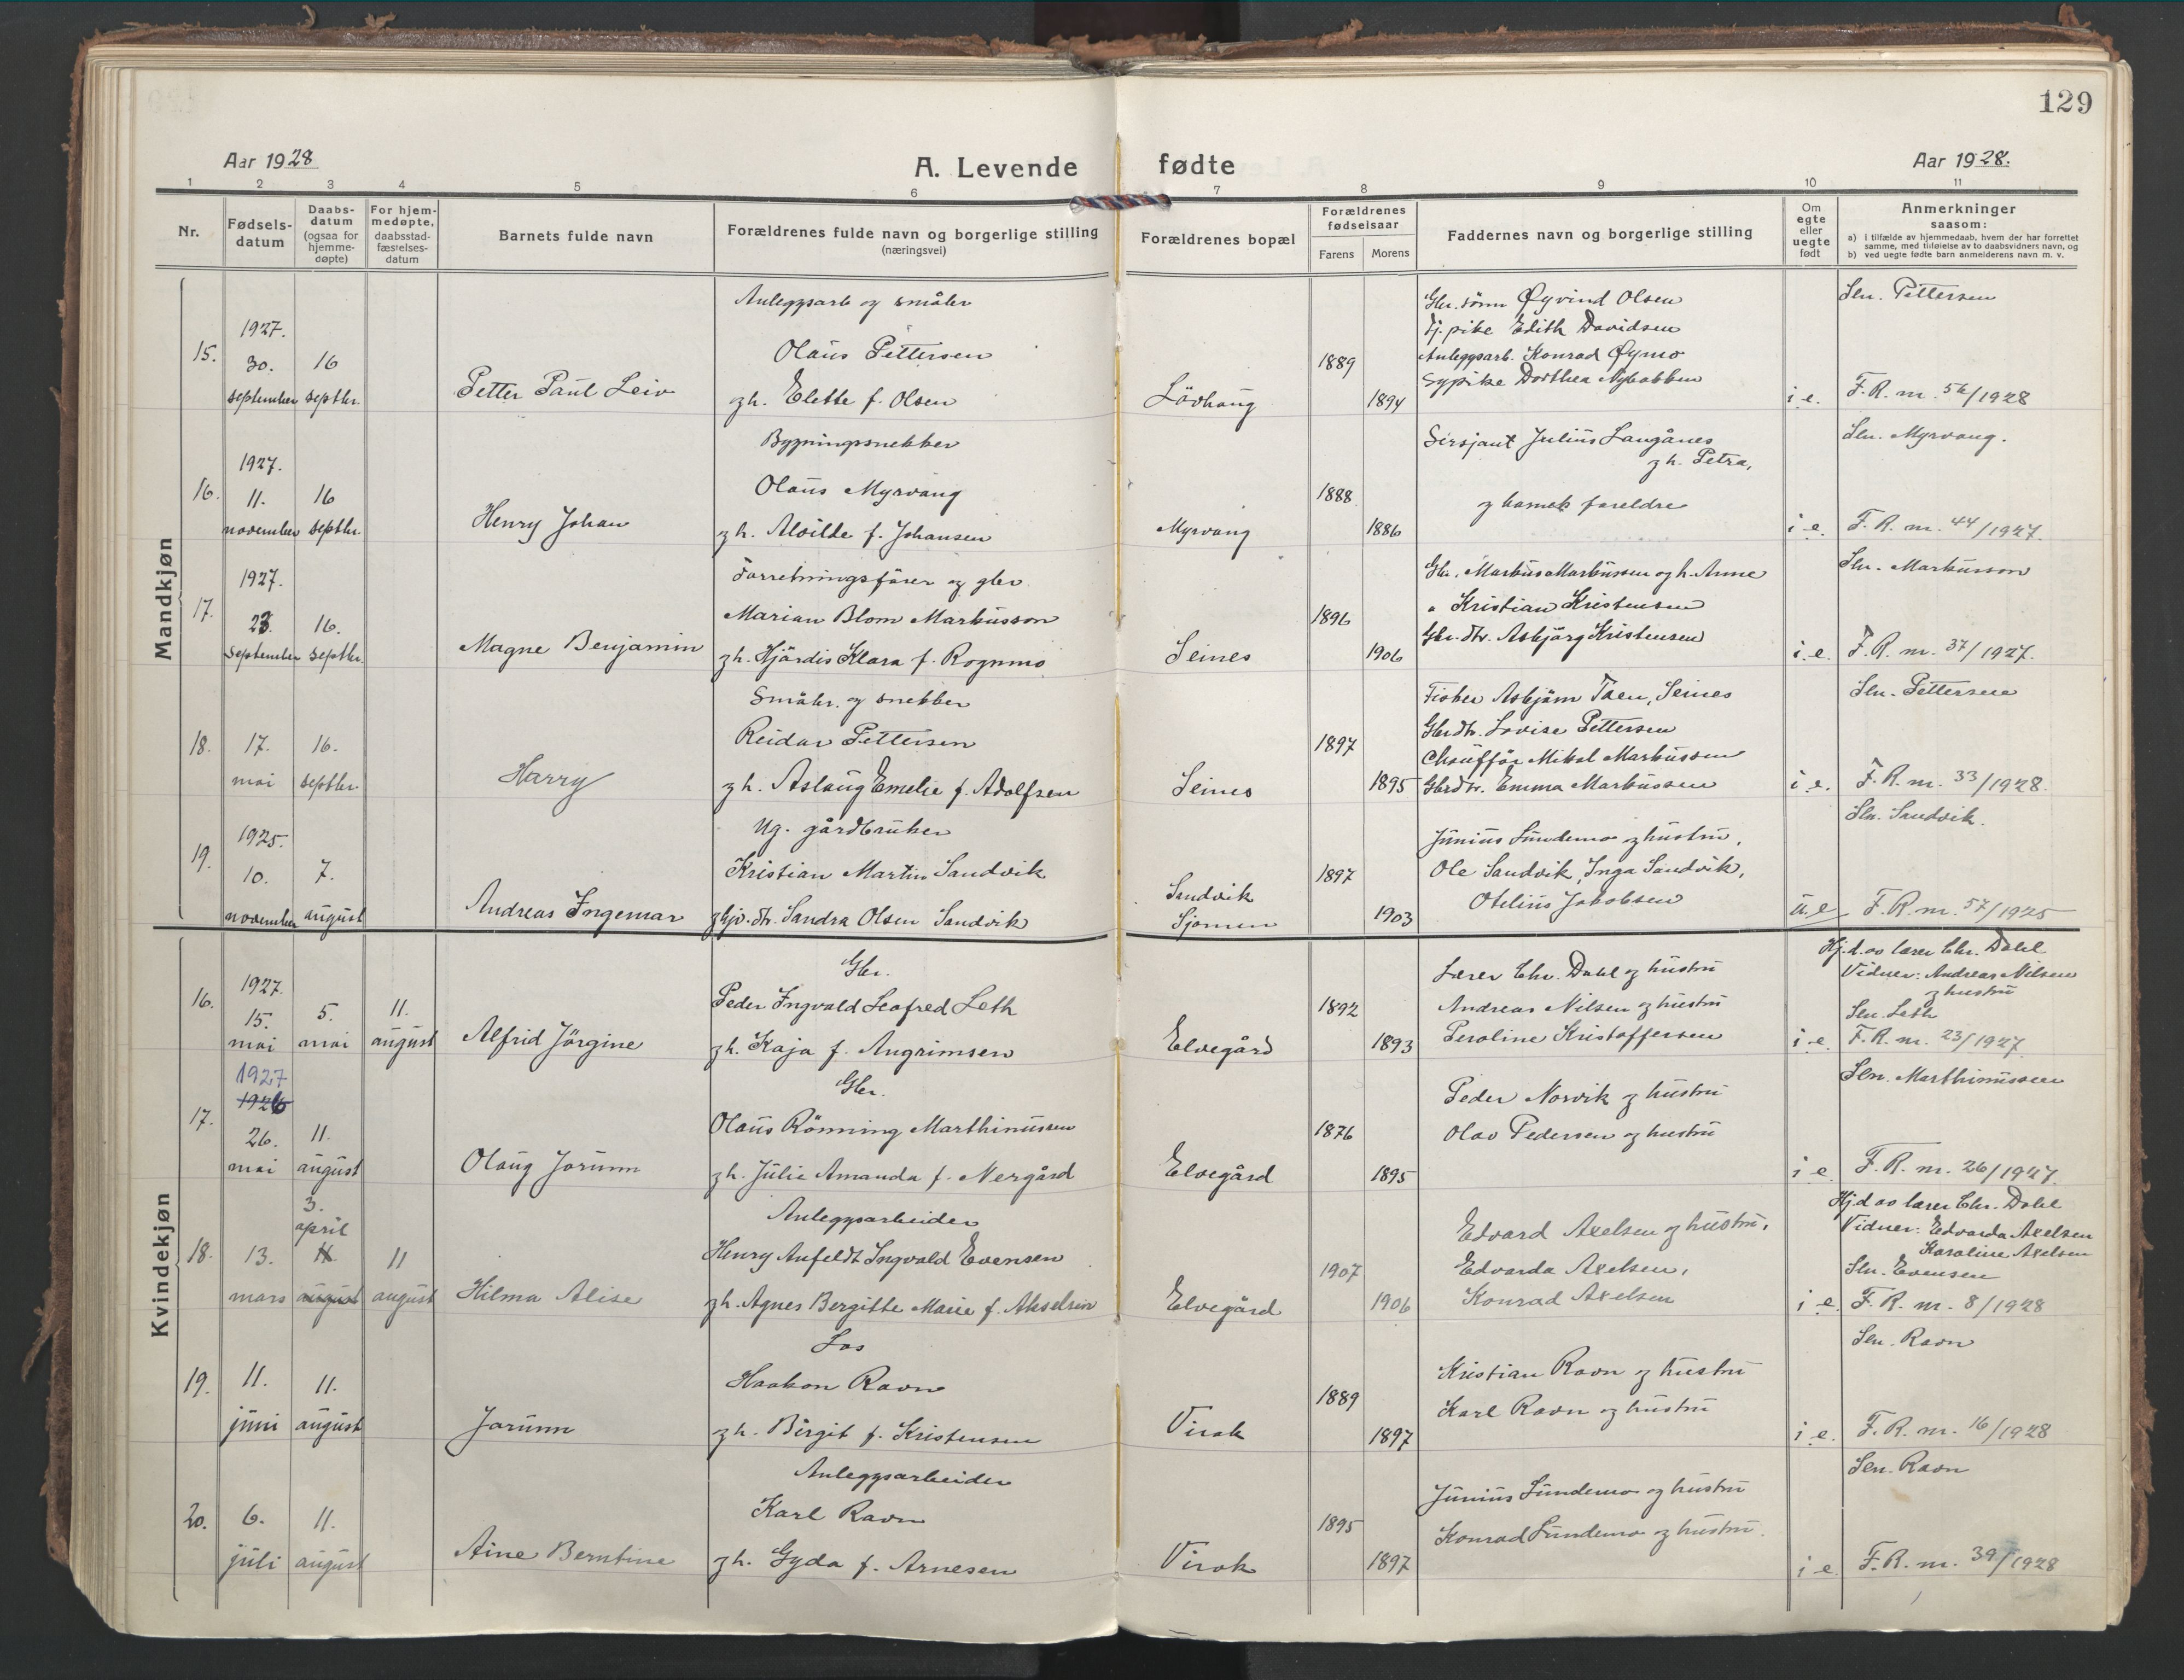 129
Aar 1928
A. Levende fødte
Aar 1928.
1 2 3 4 5 6 7 8 9 10 11
Nr.
Fødsels-
datum
Daabs-
datum
(ogsaa for
hjemme-
døpte)
For hjem-
medøpte,
daabsstad-
fæstelses-
datum
Barnets fulde navn
Forældrenes fulde navn og borgerlige stilling
(næringsvei)
Forældrenes bopæl
Forældrenes
fødselsaar
Farens Morens
Faddernes navn og borgerlige stilling
Om
egte
eller
uegte
født
Anmerkninger
saasom:
a) i tilfælde av hjemmedaab, hvem der har forrettet
samme, med tilføielse av to daabsvidners navn, og
b) ved uegte fødte barn anmelderens navn m. v.
Mandkjøn
15.
1927.
30.
september
16
septbr.
Petter Paul Leiv
Anleggsarb og småbr
Olaus Pettersen
og h. Elette f. Olsen
Lövhaug
1889
1894
Gbr. sönn Øyvind Olsen
Tj. pike Edith Davidsen
Anleggsarb. Konrad Øymo
Sypike Dorthea Nybakken
i.e.
Sln. Pettersen
F.R. nr. 56/1928
16.
1927.
11.
november
16
septbr.
Henry Johan
Bygningssnekker
Olaus Myrvang
og h. Alvilde f. Johansen
Myrvang
1888
1886
Sersjant Julius Langånes
og h. Petra,
og barnets foreldre
i.e.
Sln. Myrvang.
F.R. nr. 44/1927.
17.
1927.
23.
september
16.
septbr.
Magne Benjamin
Forretningsfører og gbr
Marian Blom Markusson
og h. Hjördis Klara f. Rognmo
Seines
1896
1906
Gbr. Markus Markussen og h. Anne
" Kristian Kristensen
Gbr. dtr. Asbjörg Kristensen
i.e.
Sln. Markusson
F.R. nr. 37/1927.
18.
17.
mai
16.
septbr.
Harry
Småbr. og snekker
Reidar Pettersen
og h. Aslaug Emelie f. Adolfsen
Seines
1897
1895
Fisker Asbjörn Toen, Seines
Gbrdtr. Lovise Pettersen
Chaufför Mikal Markussen
Gbrdtr. Emma Markussen
i.e.
Sln. Pettersen
F.R. nr. 33/1928.
19.
1925.
10.
november
7.
august
Andreas Ingemar
Ug. gårdbruker
Kristian Martin Sandvik
og gjv. dtr. Sandra Olsen Sandvik
Sandvik
Sjomen
1897
1903
Junius Sundemo og hustru,
Ole Sandvik, Inga Sandvik,
Otelius Jakobsen
u.e
Sln. Sandvik.
F.R. nr. 57/1925
Kvindekjøn
16.
1927.
15.
mai
5.
mai
11.
august
Alfrid Jörgine
Gbr.
Peder Ingvald Leafred Leth
og h. Kaja f. Angrimsen
Elvegård
1892
1893
Lærer Chr. Dahl og hustru
Andreas Nilsen og hustru
Peroline Kristoffersen
i.e.
Hj.d. av lærer Chr. Dahl
Vidner: Andreas Nilsen
og hustru
Sln. Leth
F.R. nr. 23/1927
17.
1927
1926
26.
mai
11.
august
Olaug Jorunn
Gbr.
Olaus Rönning Marthinussen
og h. Julie Amanda f. Nergård
Elvegård
1876
1895
Peder Norvik og hustru
Olav Pedersen og hustru
i.e
Sln. Marthinussen
F.R. nr. 26/1927.
18.
13.
mars
3.
april
11.
august
11
august
Hilma Alise
Anleggsarbeider
Henry Anfeldt Ingvald Evensen
og h. Agnes Bergitte Marie f. Akselsen
Elvegård
1907
1906
Edvard Axelsen og hustru,
Edvarda Axelsen,
Konrad Axelsen
i.e.
Hj.d av lærer Chr. Dahl
Vidner: Edvarda Axelsen
Karoline Axelsen
Sln. Evensen
F.R. nr. 8/1928
19.
11.
juni
11.
august
Jorunn
Los
Haakon Ravn
og h. Birgit f. Kristensen
Virak
1889
1897
Kristian Ravn og hustru
Karl Ravn og hustru
i.e.
Sln. Ravn
F.R. nr. 16/1928
20.
6.
juli
11.
august
Aine Berntine
Anleggsarbeider
Karl Ravn
og h. Gyda f. Arnesen
Virak
1895
1897
Junius Sundemo og hustru
Konrad Sundemo og hustru.
i.e
Sln. Ravn
F.R. nr. 39/1928